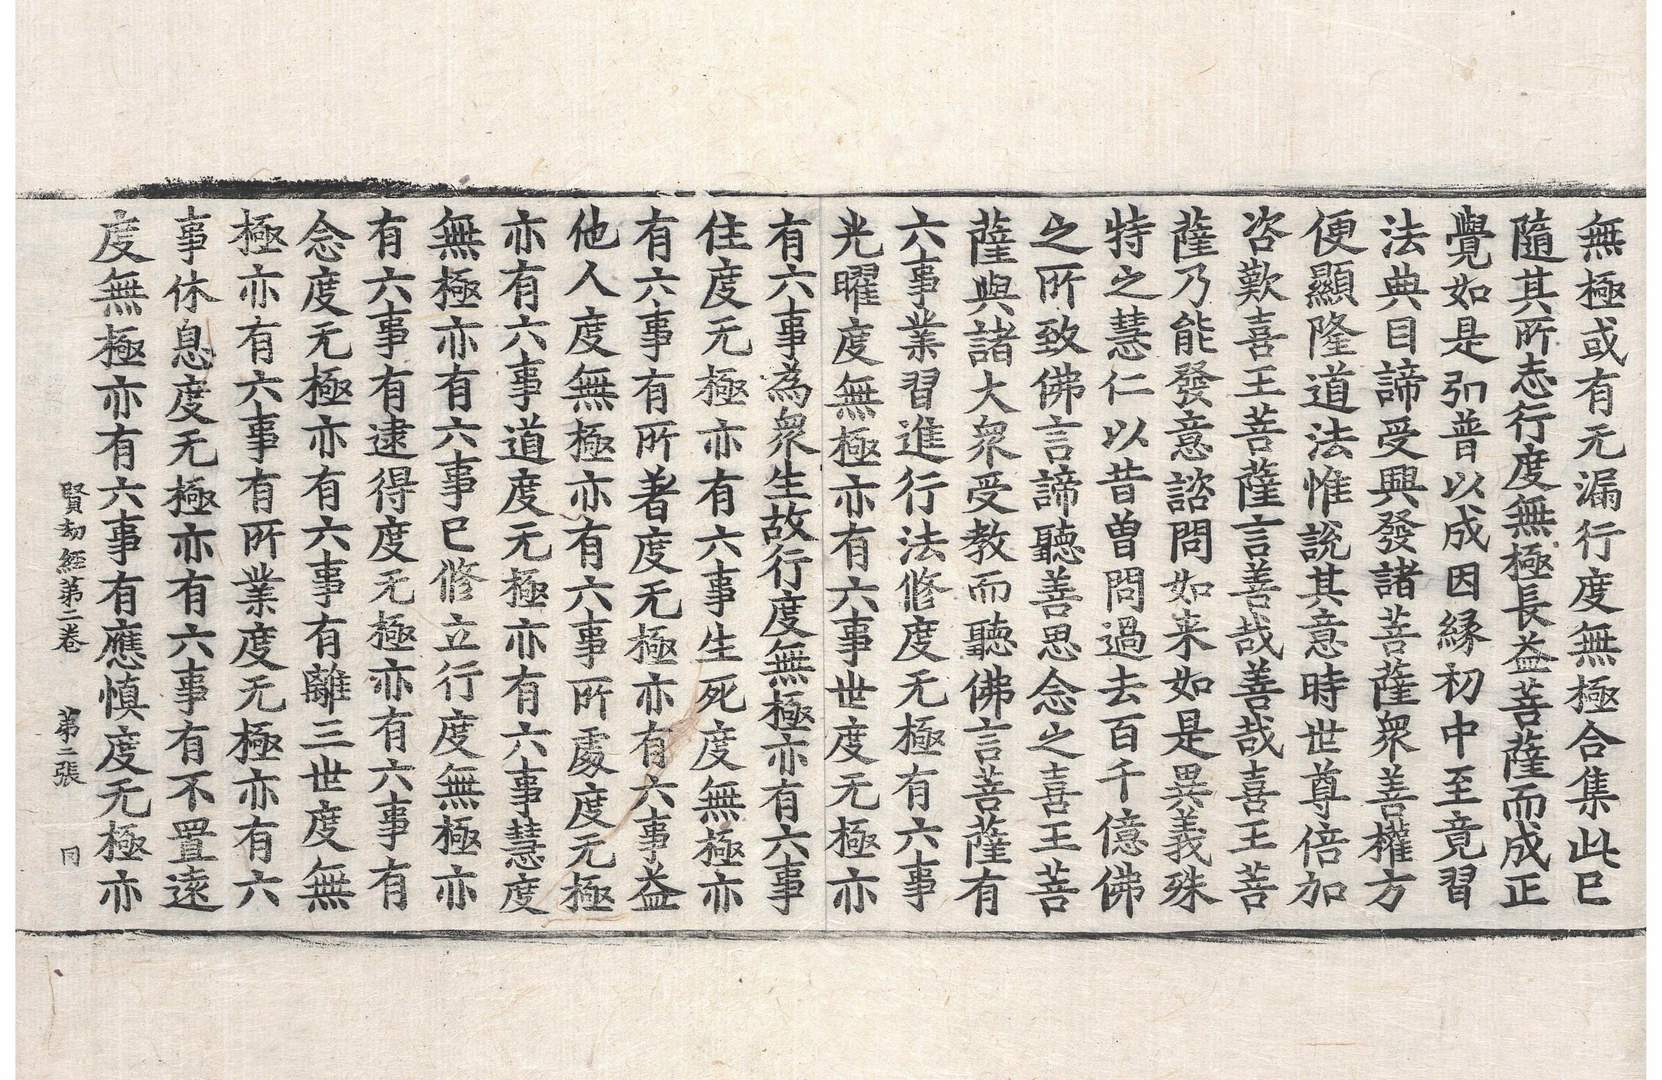 無極或有无漏行度無極合集此已
隨其所志行度無極長益菩薩而成正
覺如是引普以成因縁初中至竟習
法典目諦受興發諸菩薩衆善權方
便顯隆道法惟說其意時世尊倍加
咨歎喜王菩薩言善哉善哉喜王菩
薩乃能發意諮問如来如是異義殊
特之慧仁以昔曽問過去百千億佛
之所致佛言諦聽善思念之喜王菩
薩與諸大衆受教而聽佛言菩薩有
六事業習進行法修度无極有六事
光曜度無極亦有六事世度无極亦
有六事為衆生故行度無極亦有六事
住度无極亦有六事生死度無極亦
有六事有所著度无極亦有六事益
他人度無極亦有六事所處度无極
亦有六事道度无極亦有六事慧度
無極亦有六事已修立行度無極亦
有六事有逮得度无極亦有六事有
念度无極亦有六事有離三世度無
極亦有六事有所業度无極亦有六
事休息度无極亦有六事有不置遠
度無極亦有六事有應慎度无極亦
賢劫經第二卷 第二張 同